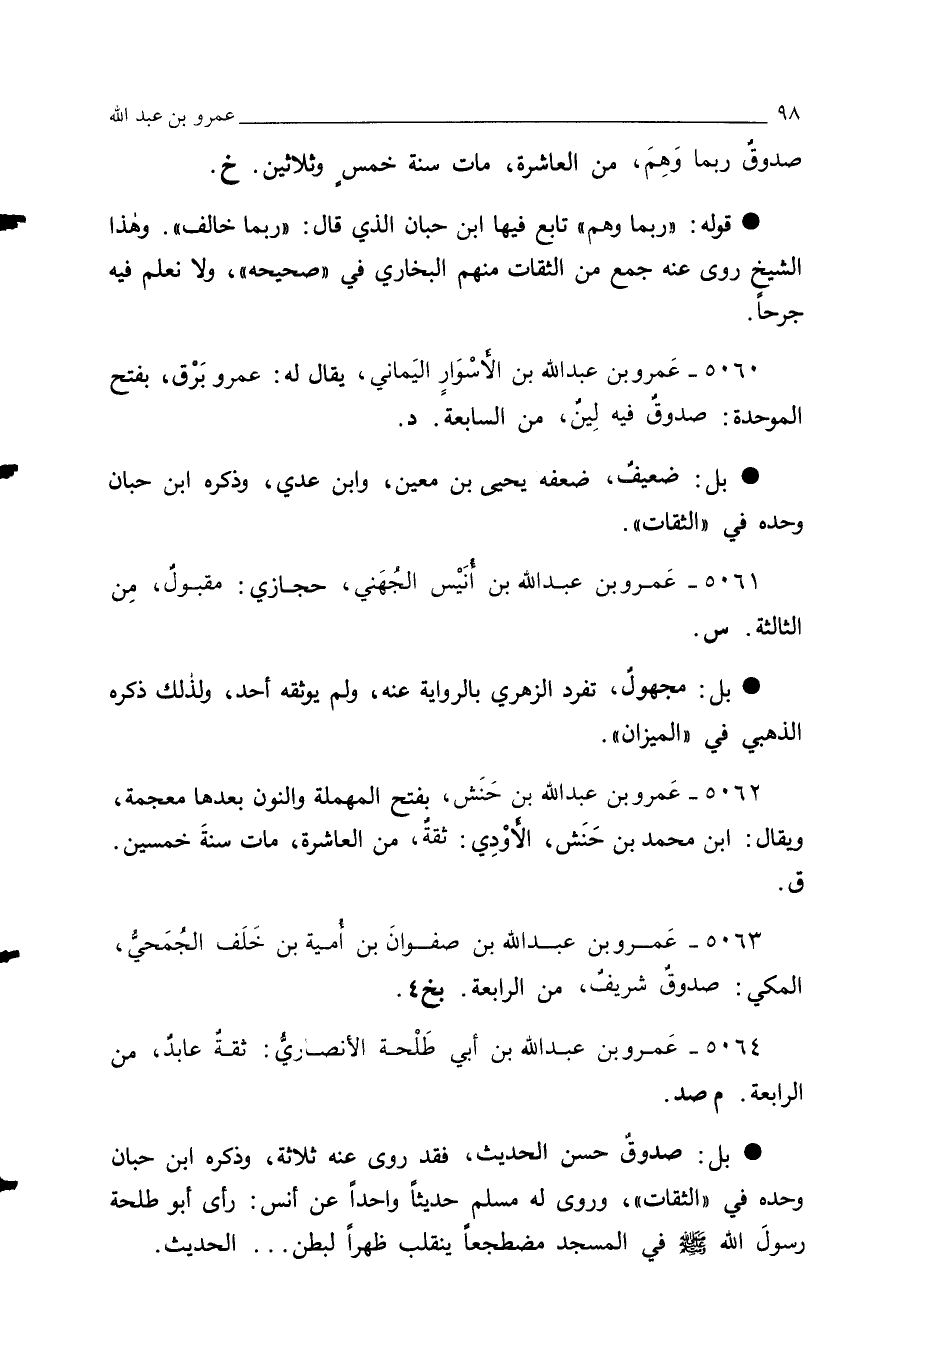 ٩٨ عمرو بن عبد الله
صدوقٌ ربما وَهِمَ، من العاشرة، مات سنة خمسٍ وثلاثين. خ.
● قوله: «ربما وهم» تابع فيها ابن حبان الذي قال: «ربما خالف». وهٰذا
الشيخ روى عنه جمع من الثقات منهم البخاري في «صحيحه»، ولا نعلم فيه
جرحاً.
٥٠٦٠ ـ عَمرو بن عبدالله بن الأَسْوَارِ اليَماني، يقال له: عمرو بَرْق، بفتح
الموحدة: صدوقٌ فيه لِينٌ، من السابعة. د.
● بل: ضعيفٌ، ضعفه يحيى بن معين، وابن عدي، وذكره ابن حبان
وحده في «الثقات».
٥٠٦١ ـ عَمرو بن عبدالله بن أُنَيْس الجُهَني، حجازي: مقبولٌ، مِن
الثالثة. س.
● بل: مجهولٌ، تفرد الزهري بالرواية عنه، ولم يوثقه أحد، ولذٰلك ذكره
الذهبي في «الميزان».
٥٠٦٢ ـ عَمرو بن عبدالله بن حَنَش، بفتح المهملة والنون بعدها معجمة،
ويقال: ابن محمد بن حَنَش، الأَوْدِي: ثقةٌ، من العاشرة، مات سنةَ خمسين.
ق.
٥٠٦٣ ـ عَمرو بن عبدالله بن صفوانَ بن أُمية بن خَلَف الجُمَحيُّ،
المكي: صدوقٌ شريفٌ، من الرابعة. بخ٤.
٥٠٦٤ ـ عَمرو بن عبدالله بن أبي طَلْحة الأنصاريُّ: ثقةٌ عابدٌ، من
الرابعة. م صد.
● بل: صدوقٌ حسن الحديث، فقد روى عنه ثلاثة، وذكره ابن حبان
وحده في «الثقات»، وروى له مسلم حديثاً واحداً عن أنس: رأى أبو طلحة
رسولَ الله ﷺ في المسجد مضطجعاً ينقلب ظهراً لبطن... الحديث.